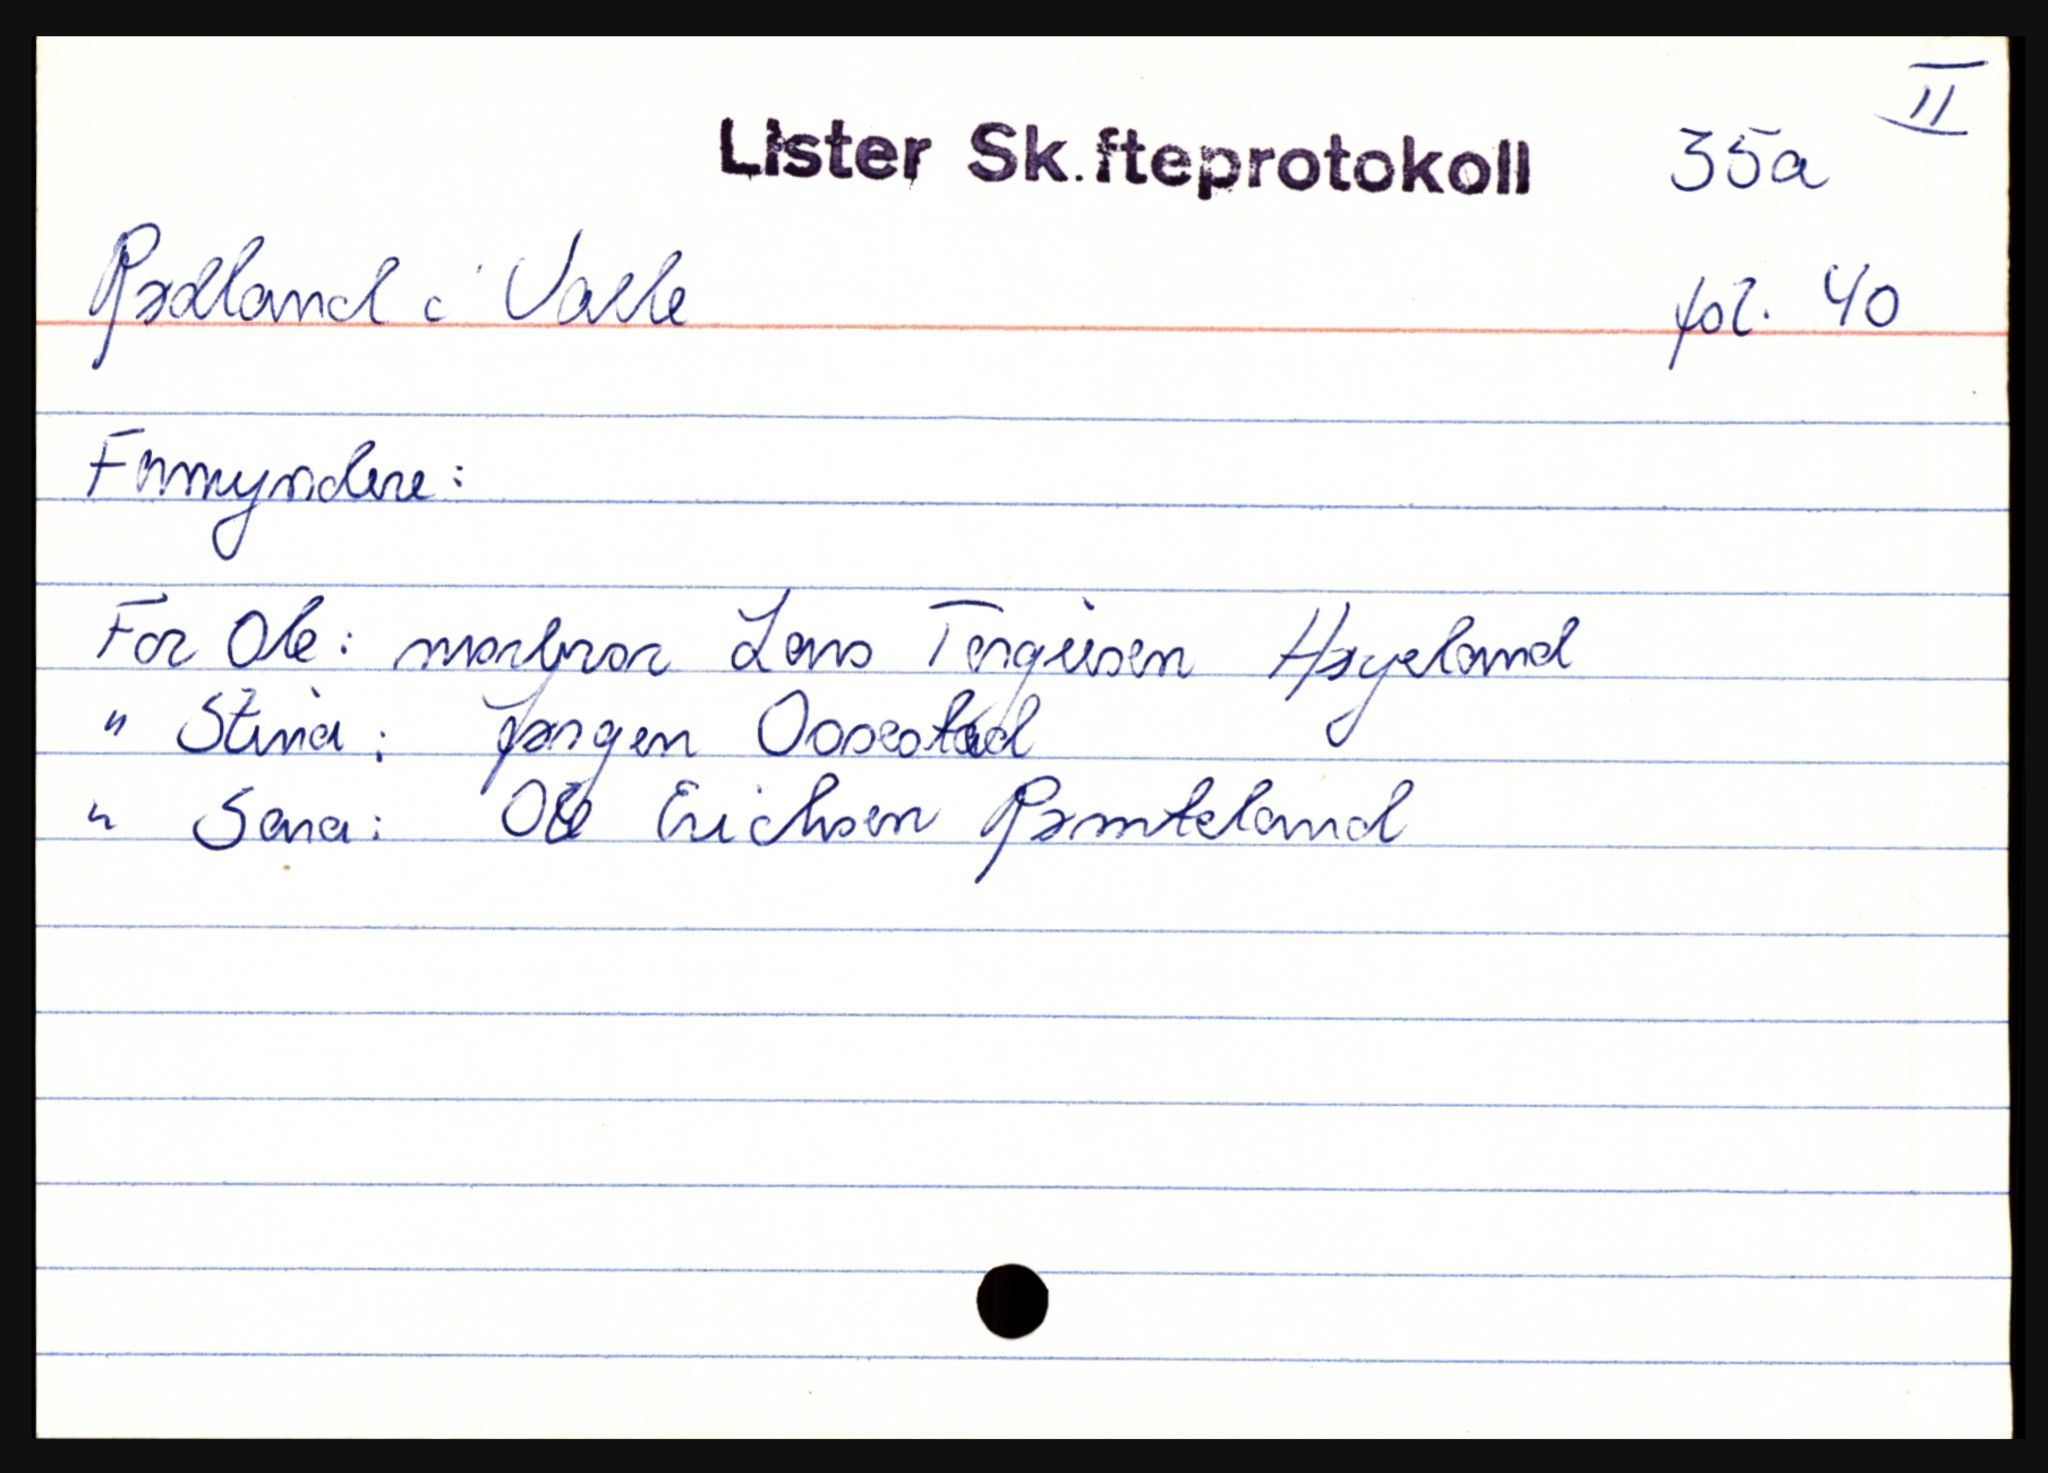 II
Lister Sk.fteprotokoll 35a
Rødland i Valle fol. 40
Formyndere:
For Ole: morbror Lars Tergiesen Høyeland
" Stina: Jørgen Oosestad
" Sara: Ole Erichsen Rømteland